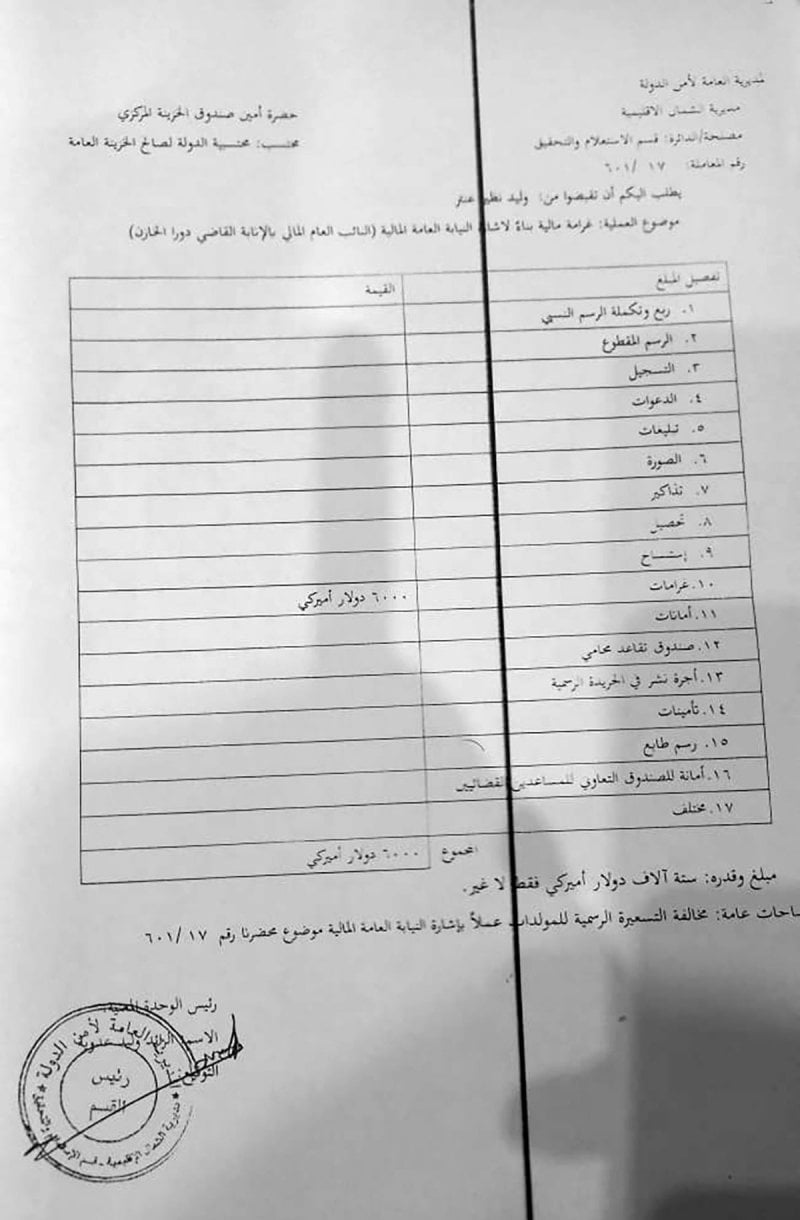 مديرية العامة لأمن الدولة
مديرية الشمال الاقليمية
مصلحة/الدائرة: قسم الاستعلام والتحقيق
رقم المعاملة: ١٧ /٦٠١
حضرة أمين صندوق الخزينة المركزي
محتسب: محتسبية الدولة لصالح الخزينة العامة
يطلب اليكم أن تقبضوا من: وليد نظير عنتر
موضوع العملية: غرامة مالية بناءً لاشارة النيابة العامة المالية (النائب العام المالي بالإنابة القاضي دورا الخازن)
تفصيل المبلغ القيمة
١. ربع وتكملة الرسم النسبي
٢. الرسم المقطوع
٣. التسجيل
٤. الدعوات
٥. تبليغات
٦. الصورة
٧. تذاكير
٨. تحصيل
٩. إستنساخ
١٠. غرامات ٦٠٠٠ دولار أميركي
١١. أمانات
١٢. صندوق تقاعد محامي
١٣. أجرة نشر في الجريدة الرسمية
١٤. تأمينات
١٥. رسم طابع
١٦. أمانة للصندوق التعاوني للمساعدين القضائيين
١٧. مختلف
المجموع ٦٠٠٠ دولار أميركي
مبلغ وقدره: ستة آلاف دولار أميركي فقط لا غير.
ساحات عامة: مخالفة التسعيرة الرسمية للمولدات عملاً بإشارة النيابة العامة المالية موضوع محضرنا رقم ١٧ /٦٠١
رئيس الوحدة
الاسم: الرائد وليد
التوقيع:
المديرية العامة لأمن الدولة
رئيس
القسم
مديرية الشمال الإقليمية - قسم الإستعلام والتحقيق